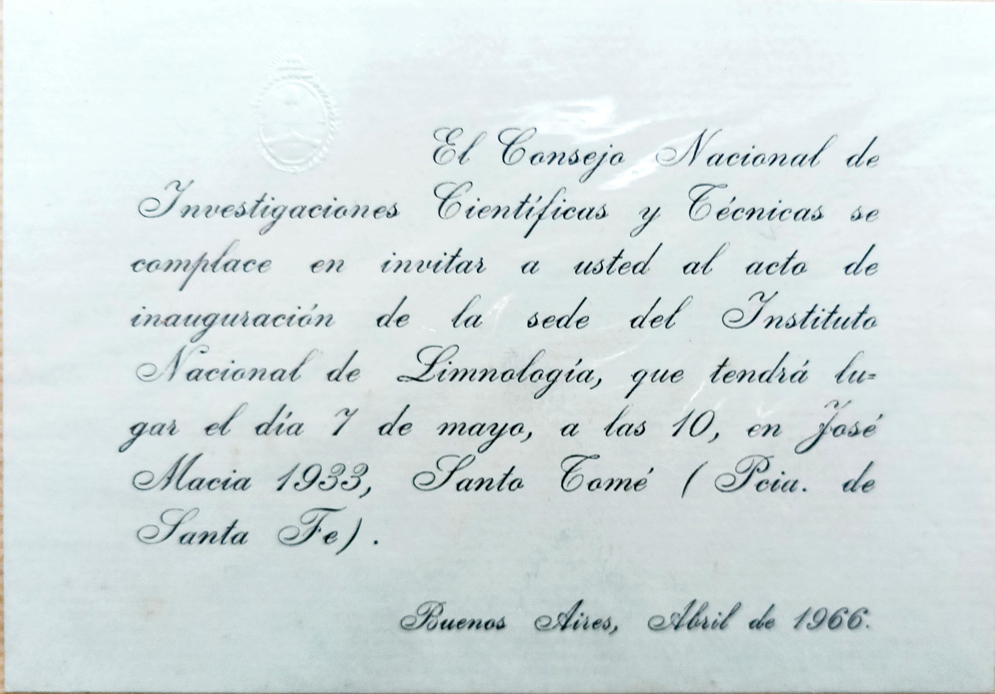 El Consejo Nacional de
Investigaciones Científicas y Técnicas se
complace en invitar a usted al acto de
inauguración de la sede del Instituto
Nacional de Limnología, que tendrá lu=
gar el día 7 de mayo, a las 10, en José
Macia 1933, Santo Tomé ( Pcia. de
Santa Fe) .
Buenos Aires, Abril de 1966.